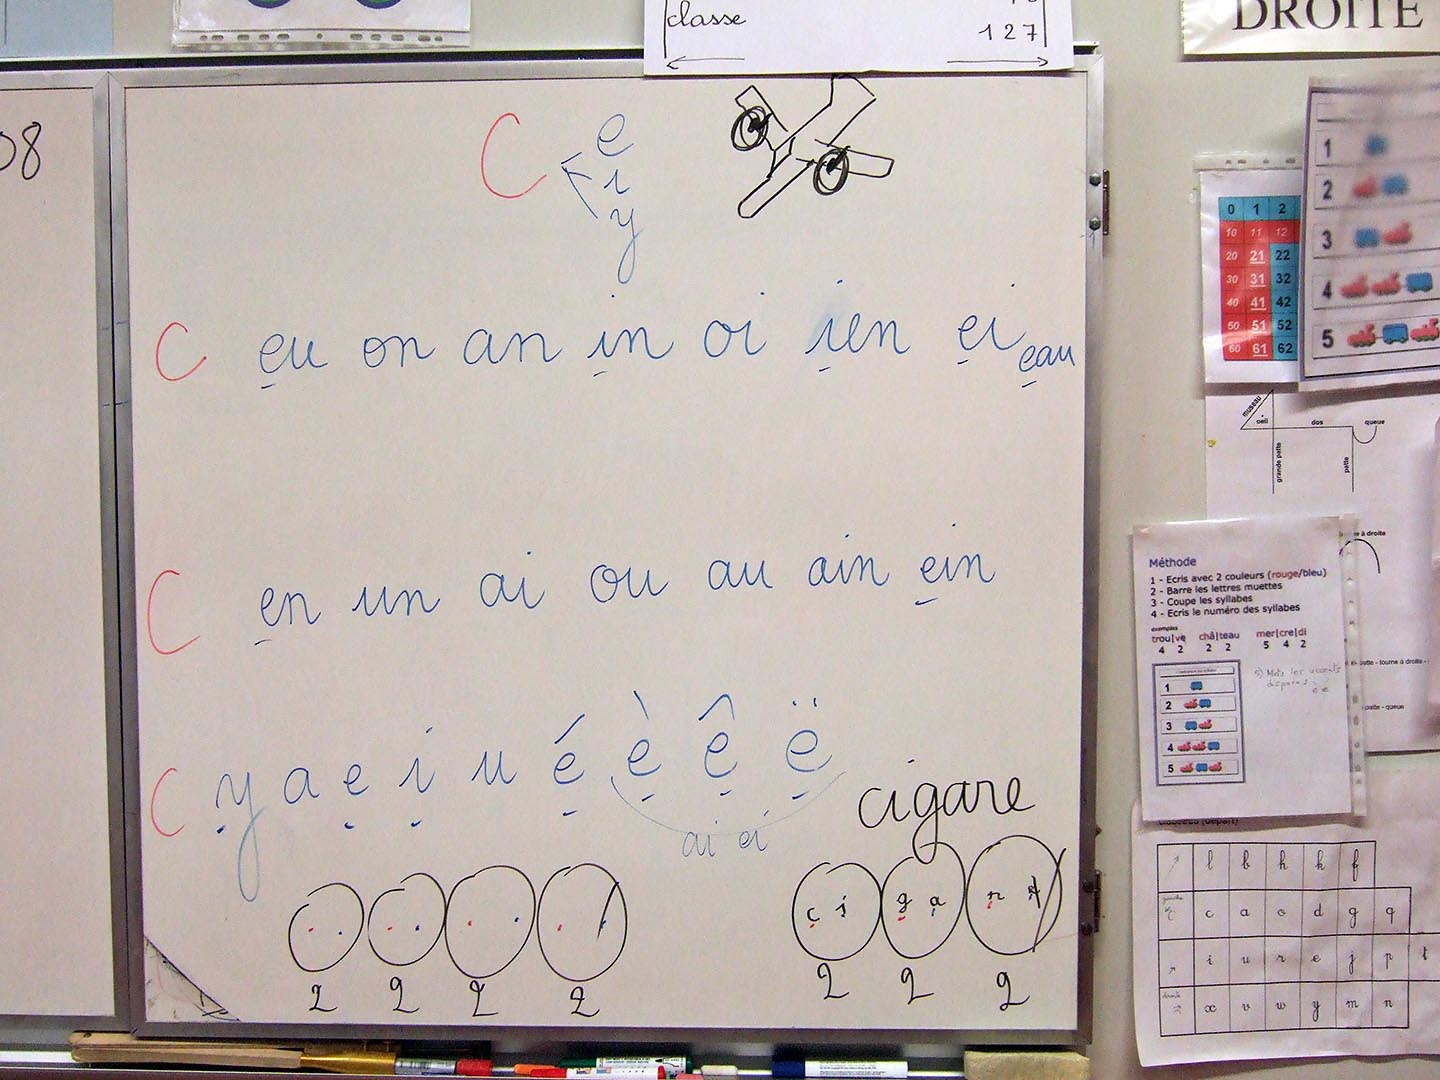 classe
127
DROITE
08
C
e
i
y
C eu on an in oi ien ei eau
C en un ai ou au ain ein
C y a e i u é è ê ë
ai ei
cigare
c i g a r e
2 2 2 2
2 2 2
0 1 2
10 11 12
20 21 22
30 31 32
40 41 42
50 51 52
60 61 62
1
2
3
4
5
museau
oeil
dos
queue
grande patte
patte
e à droite
Méthode
1 - Ecris avec 2 couleurs (rouge/bleu)
2 - Barre les lettres muettes
3 - Coupe les syllabes
4 - Ecris le numéro des syllabes
exemples
trou|ve châ|teau mer|cre|di
4 2 2 2 5 4 2
5) Mets les accents
1
2
3
4
5
patte - tourne à droite -
patte - queue
(départ)
l b h k f
c a o d g q
i u r e j p t
droite
x v w y m n